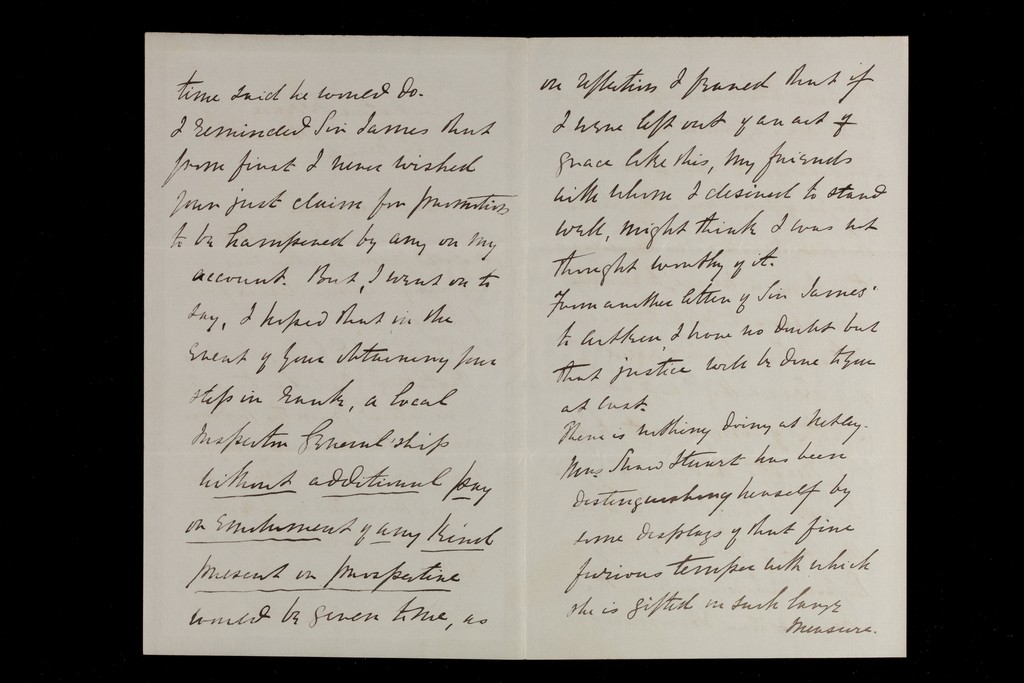 time said he would do.
I reminded Sir James that
from first I never wished
your just claim for promotion
to be hampered by any on my
account. But, I went on to
say, I hoped that in the
event of your obtaining your
step in rank, a local
Inspector General'ship
without additional pay
or emolument of any kind
present or prospective
would be given to me, as
on reflection I feared that if
I were left out of an act of
grace like this, my friends
with whom I desired to stand
well, might think I was not
thought worthy of it.
From another letter of Sir James'
to Aitken, I have no doubt but
that justice will be done to you
at last.
There is nothing doing at Netley.
Mrs Shaw Stewart has been
distinguishing herself by
some displays of that fine
furious temper with which
she is gifted in such large
measure.